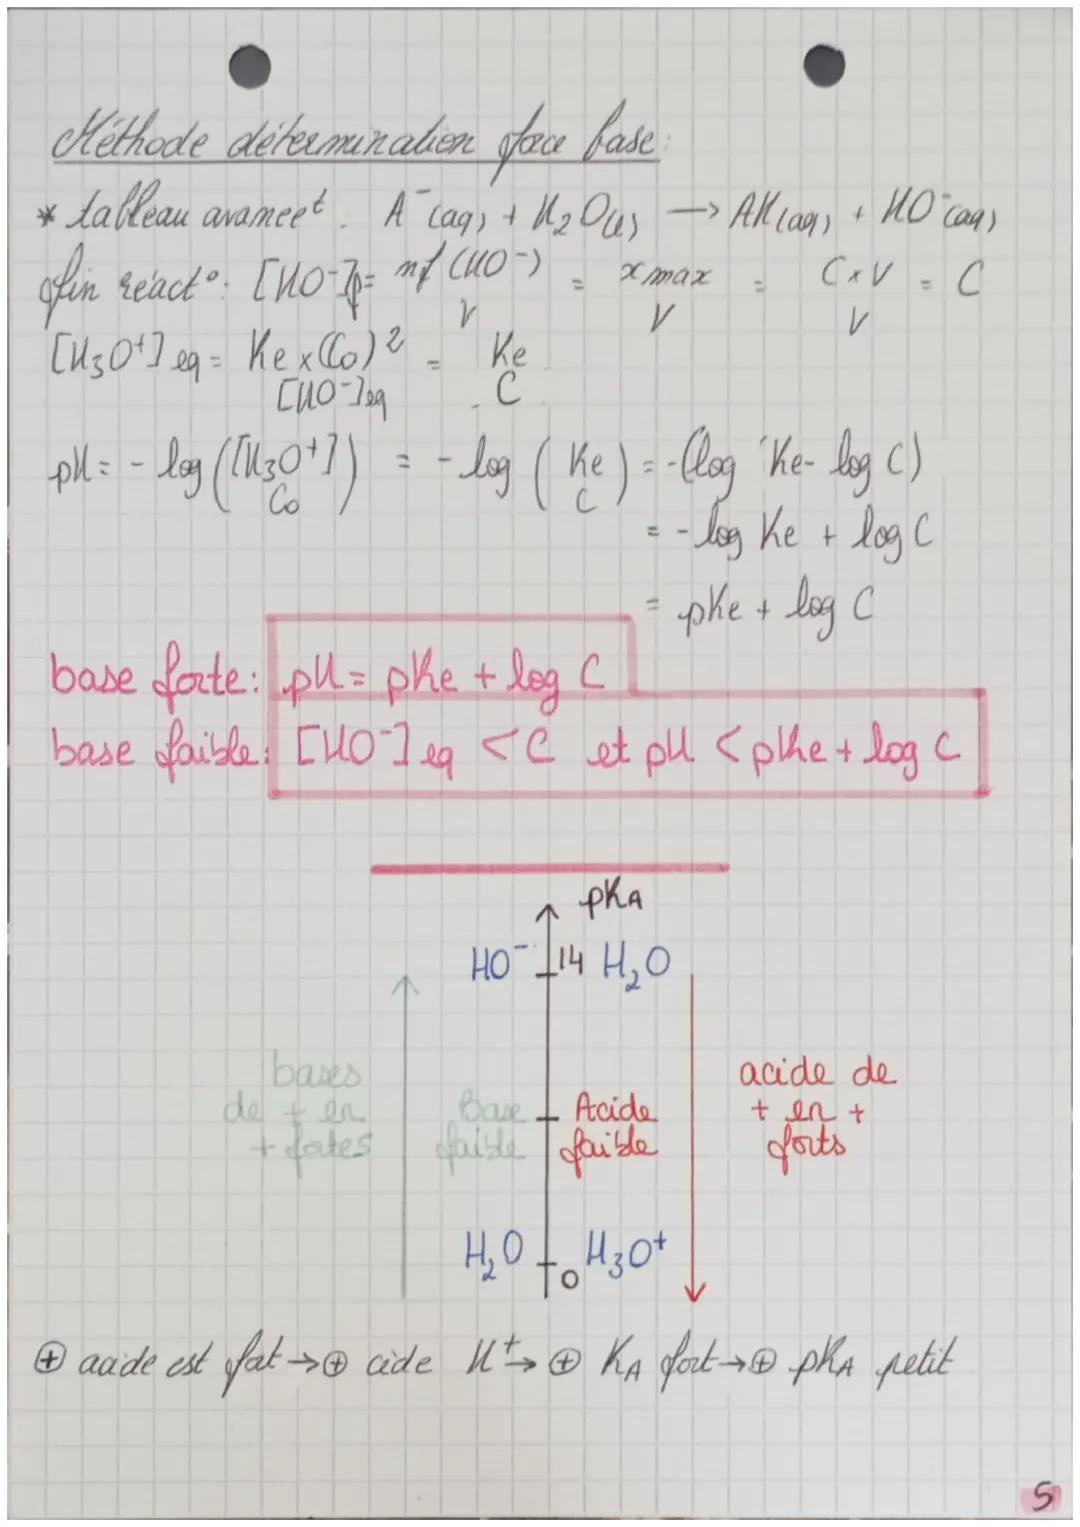 Méthode détermination force base:
* tableau avanceet. A⁻(aq) + H₂O(l) → AH(aq) + HO⁻(aq)
fin réact°: [HO⁻]f = nf(HO⁻)/V = xmax/V = C×V/V = C
[H₃O⁺]eq = Ke×(C₀)²/[HO⁻]eq = Ke/C
pH = -log([H₃O⁺]/C₀) = -log(Ke/C) = -(log Ke - log C)
= -log Ke + log C
= pKe + log C
base forte: pH = pKe + log C
base faible: [HO⁻]eq < C et pH < pKe + log C
pKA
HO⁻ 14 H₂O
bases de + en + fortes
Base faible
Acide faible
acide de + en + forts
H₂O 0 H₃O⁺
⊕ acide est fort → ⊕ cède H⁺ → ⊕ KA fort → ⊕ pKA petit
5